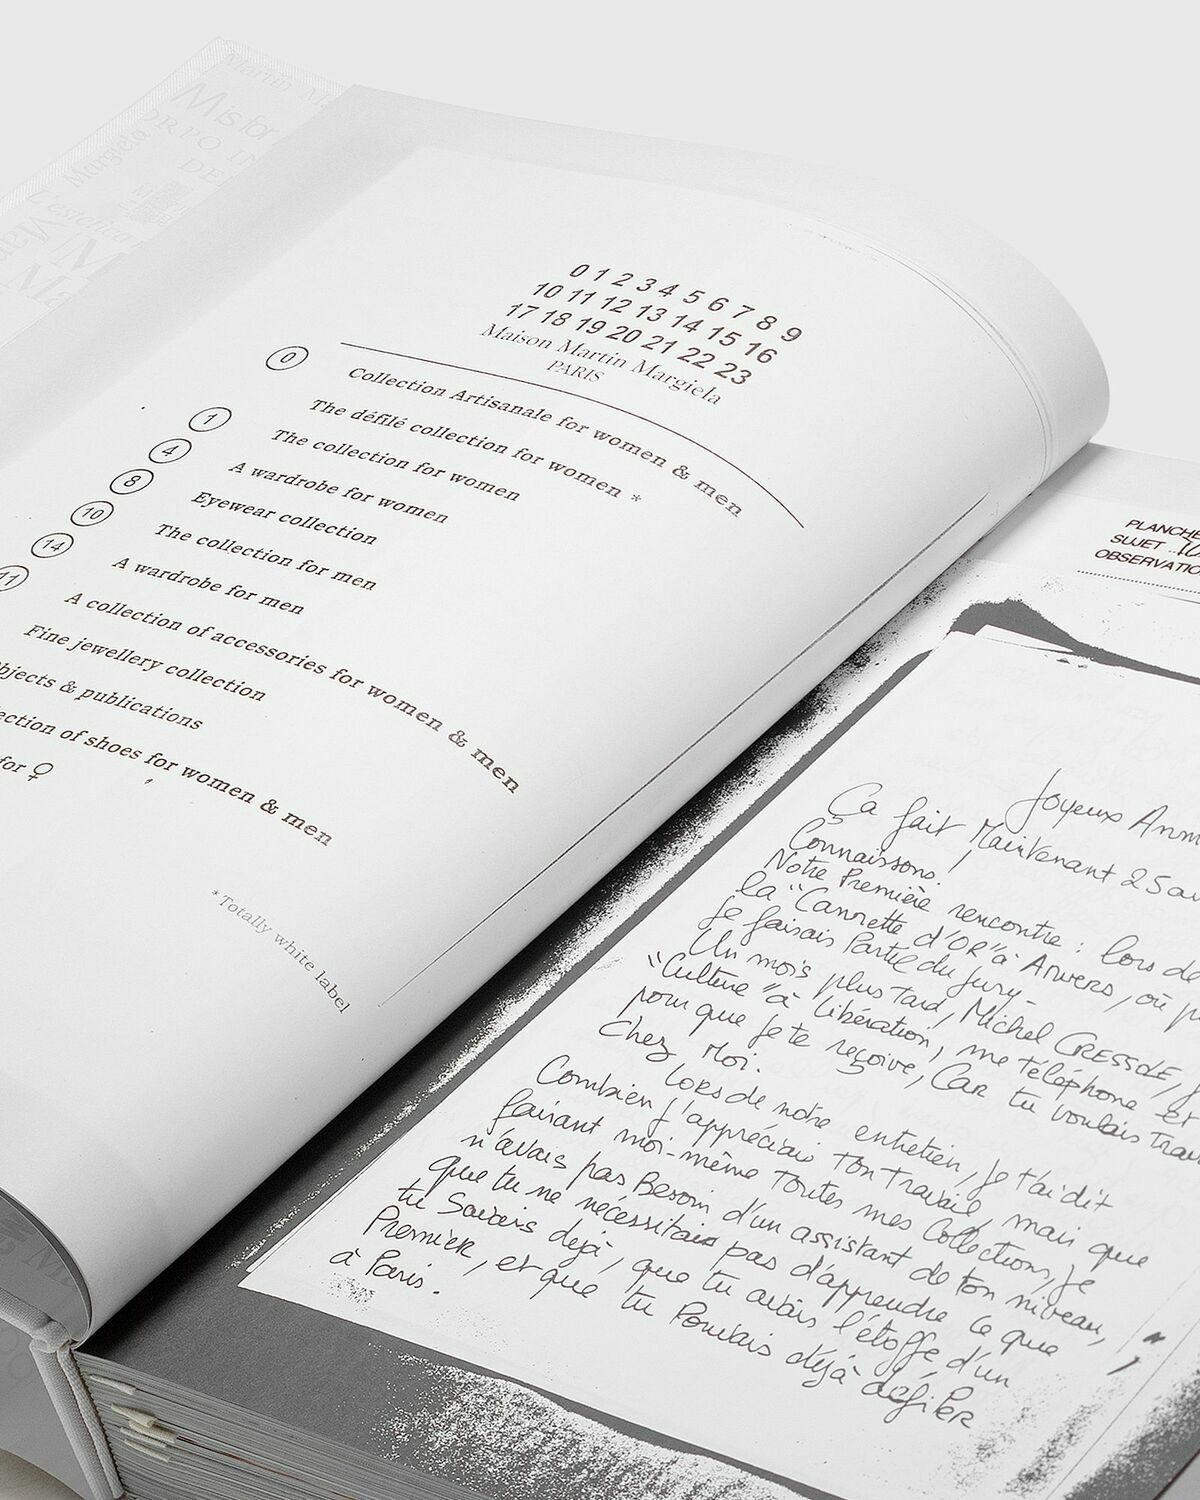 Martin M
M is for
ORPO IN
DE
Margiela
L'estetica
Mar
M
Ma
0 1 2 3 4 5 6 7 8 9
10 11 12 13 14 15 16
17 18 19 20 21 22 23
Maison Martin Margiela
PARIS
0 Collection Artisanale for women & men
The défilé collection for women *
1 The collection for women
4 A wardrobe for women
8 Eyewear collection
10 The collection for men
14 A wardrobe for men
11 A collection of accessories for women & men
Fine jewellery collection
bjects & publications
ection of shoes for women & men
for ♀
*Totally white label
PLANCHE
SUJET
OBSERVATIO
Joyeux Anni
Ça fait Maintenant 25 an
Connaissons !
Notre Première rencontre : lors de
la "Cannette d'OR" à Anvers, où
je faisais Partie du jury -
Un mois plus tard, Michel CRESSOLE,
"Culture" à Libération, me téléphone et
pour que je te reçoive, Car tu voulais trav
Chez Moi.
lors de notre entretien, je t'ai dit
Combien j'appréciais ton travail, mais que
faisant moi-même toutes mes Collections, je
n'avais pas Besoin d'un assistant de ton niveau,
que tu ne nécessitais pas d'apprendre ce que
tu Savais dejà, que tu avais l'étoffe d'un
Premier, et que tu Pouvais déjà defiler
à Paris.